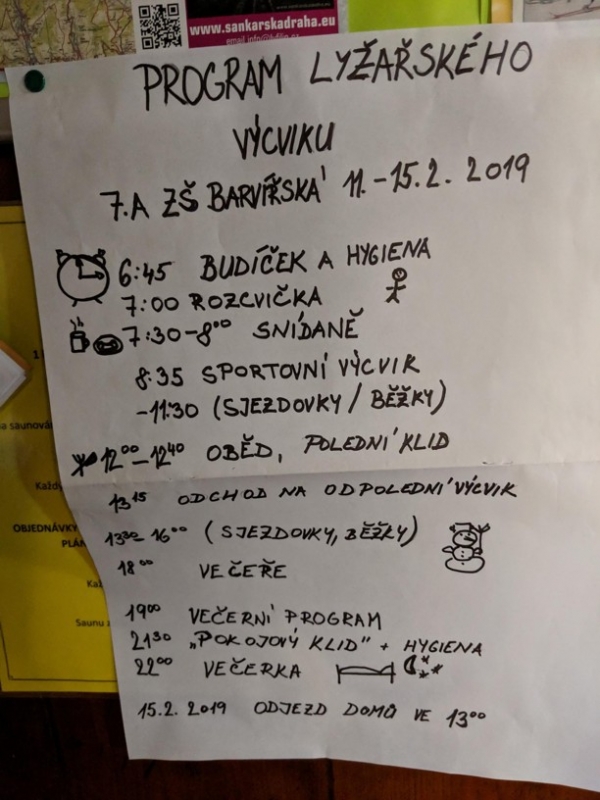 www.sankarskadraha.eu
PROGRAM LYŽAŘSKÉHO
VÝCVIKU
7.A ZŠ BARVÍŘSKÁ 11.-15.2. 2019
6:45 BUDÍČEK A HYGIENA
7:00 ROZCVIČKA
7:30-8⁰⁰ SNÍDANĚ
8:35 SPORTOVNÍ VÝCVIK
-11:30 (SJEZDOVKY / BĚŽKY)
12⁰⁰-12⁴⁰ OBĚD, POLEDNÍ KLID
13¹⁵ ODCHOD NA ODPOLEDNÍ VÝCVIK
13³⁰- 16⁰⁰ (SJEZDOVKY, BĚŽKY)
18⁰⁰ VEČEŘE
19⁰⁰ VEČERNÍ PROGRAM
21³⁰ „POKOJOVÝ KLID" + HYGIENA
22⁰⁰ VEČERKA
15.2. 2019 ODJEZD DOMŮ VE 13⁰⁰
OBJEDNÁVKY